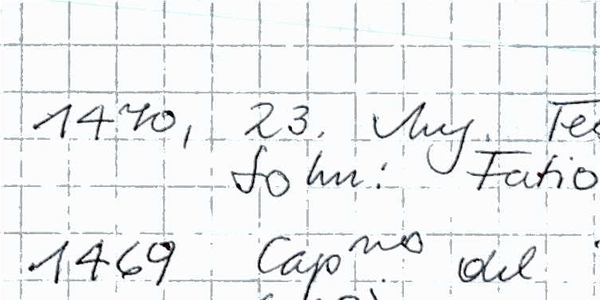 1470, 23. Aug. Te
Sohn: Fatio
1469 Cap^no del